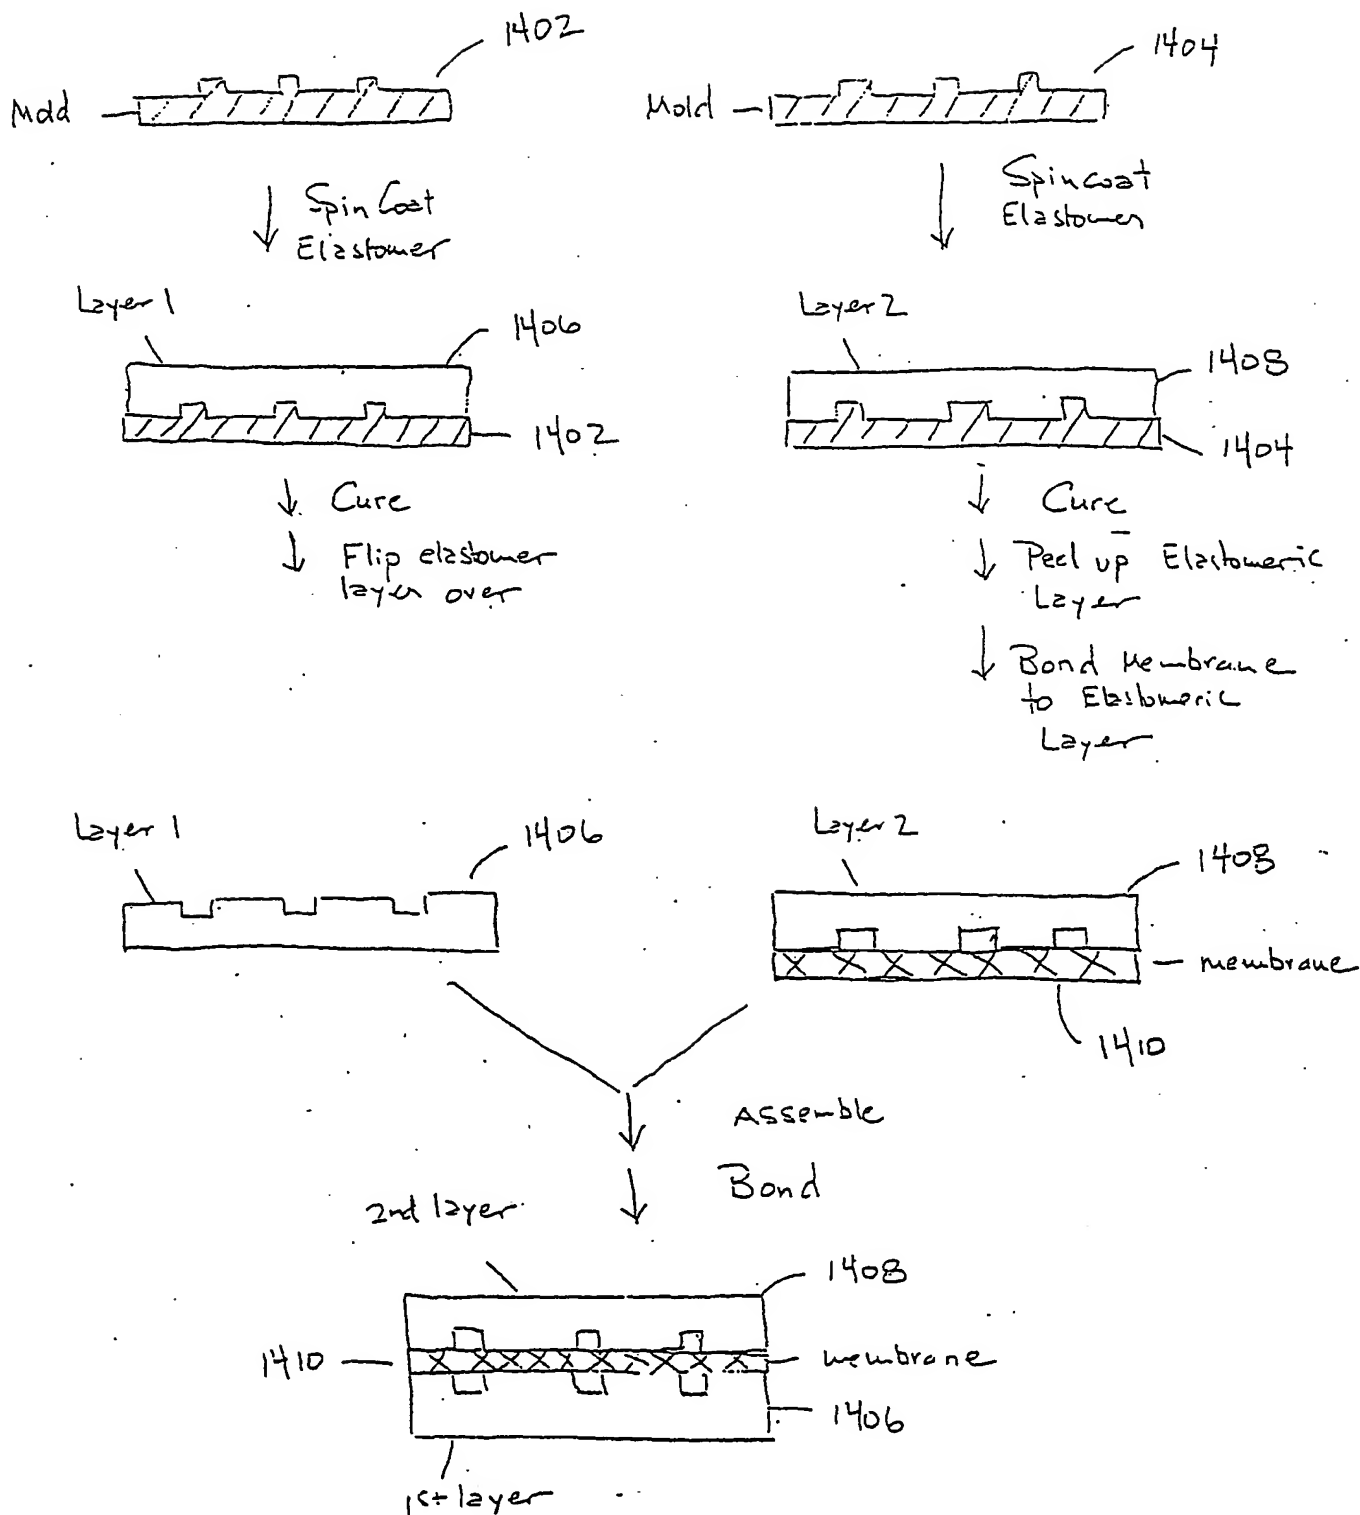 1402
Mold
Spin Coat
Elastomer
Layer 1
1406
1402
Cure
Flip elastomer
layer over
Layer 1
1406
1404
Mold
Spin coat
Elastomer
Layer 2
1408
1404
Cure
Peel up Elastomeric
Layer
Bond Membrane
to Elastomeric
Layer
Layer 2
1408
membrane
1410
Assemble
Bond
2nd layer
1408
1410
membrane
1406
1st layer